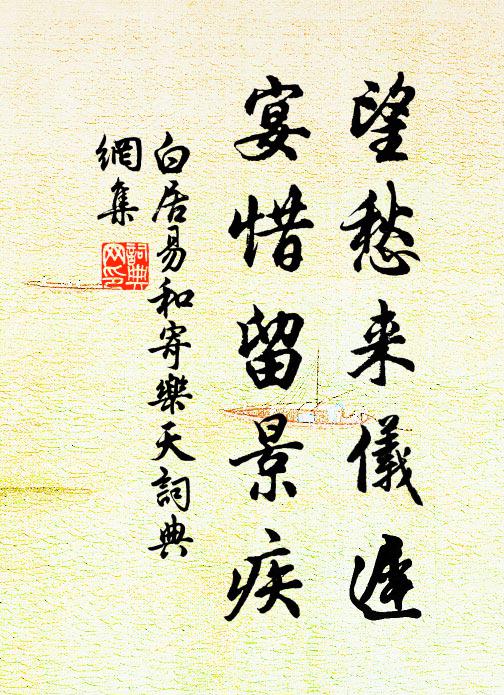 望愁来儀遲
宴惜留景疾
白居易和寄樂天詞典
網集
詞典
网印